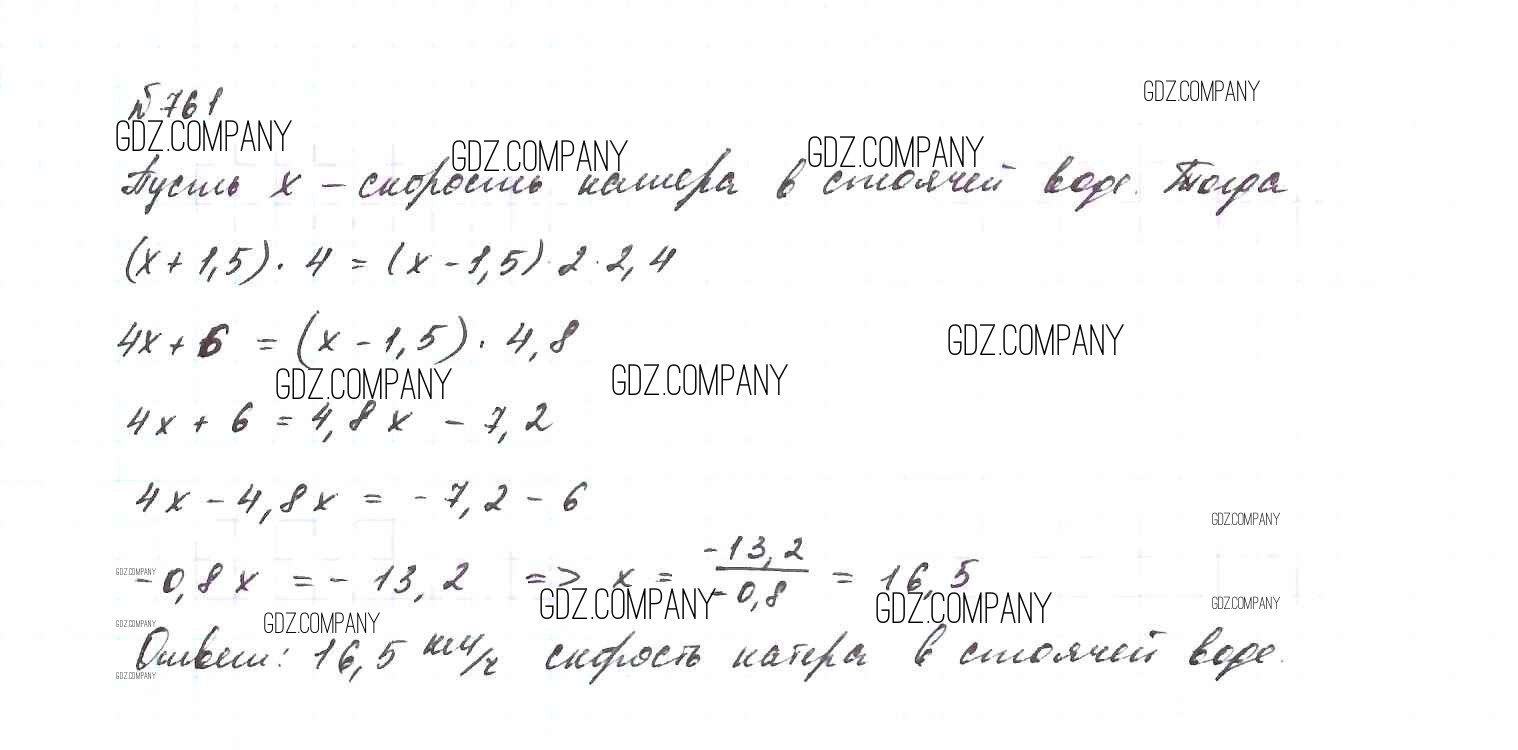 №761
GDZ.COMPANY
GDZ.COMPANY GDZ.COMPANY GDZ.COMPANY
Пусть x – скорость катера в стоячей воде. Тогда
(x + 1,5) · 4 = (x - 1,5) · 2 · 2,4
4x + 6 = (x - 1,5) · 4,8
GDZ.COMPANY
GDZ.COMPANY GDZ.COMPANY
4x + 6 = 4,8x - 7,2
4x - 4,8x = -7,2 - 6
GDZ.COMPANY
-0,8x = -13,2 => x = -13,2 / -0,8 = 16,5
GDZ.COMPANY
GDZ.COMPANY GDZ.COMPANY GDZ.COMPANY
GDZ.COMPANY GDZ.COMPANY
Ответ: 16,5 км/ч скорость катера в стоячей воде.
GDZ.COMPANY